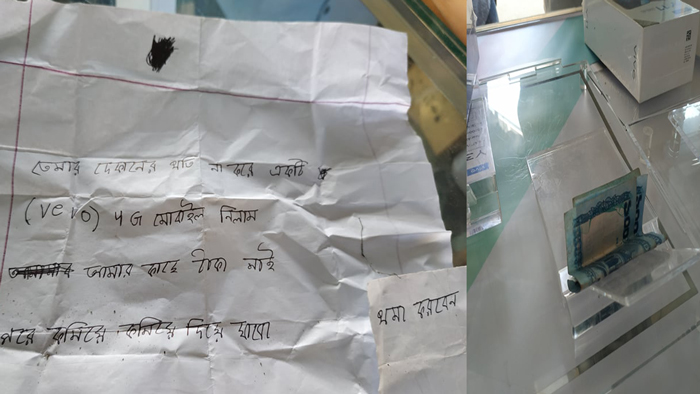 তোমার দোকানের খতি না করে একটি
(vevo) 4G মোবাইল নিলাম
আমার কাছে টাকা নাই
পরে কমিয়ে কমিয়ে দিয়ে যাবো
খমা করবেন